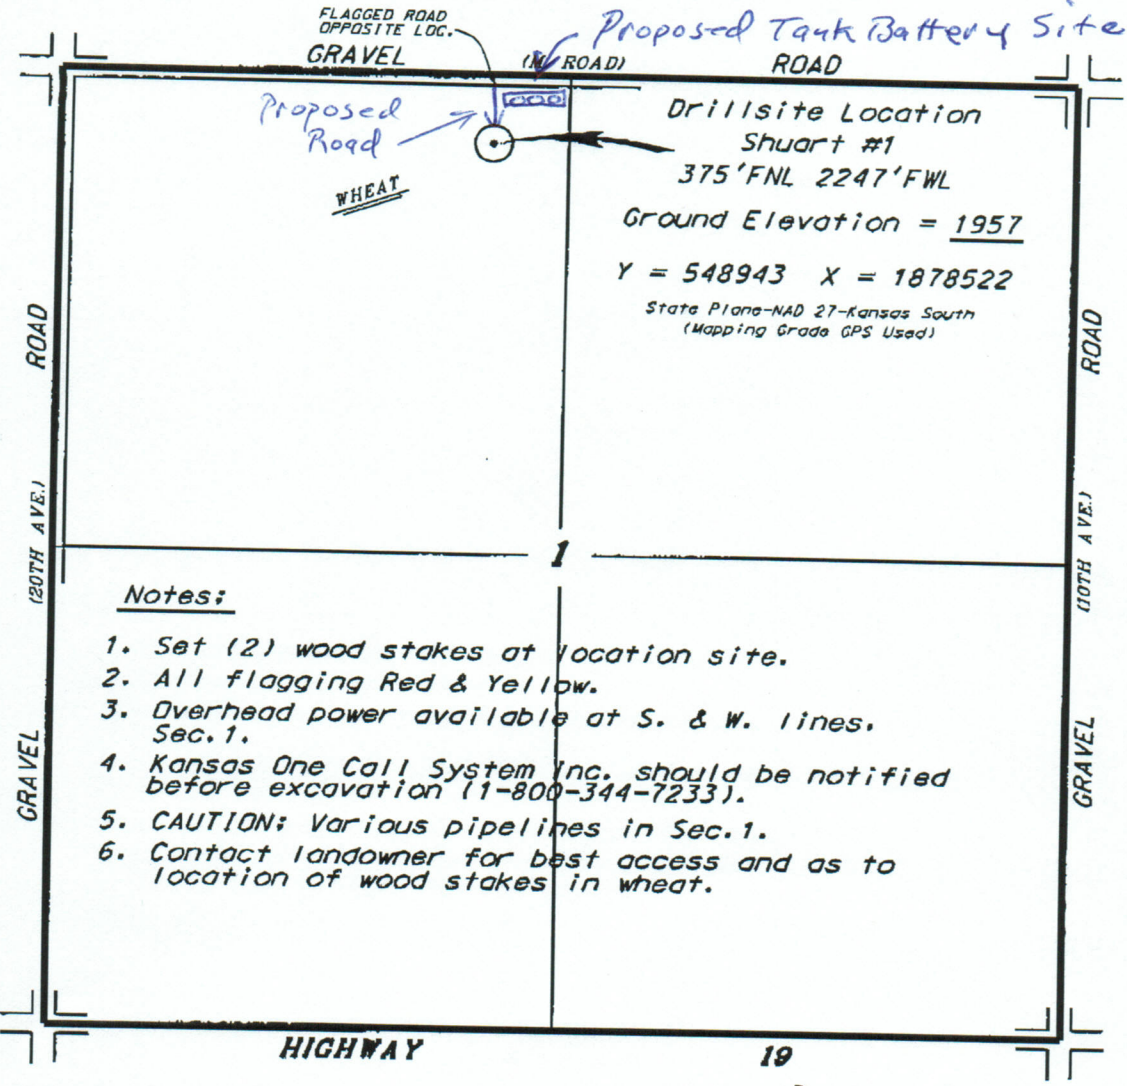 FLAGGED ROAD
OPPOSITE LOC.
Proposed Tank Battery Site
GRAVEL (M ROAD) ROAD
Proposed
Road
WHEAT
Drillsite Location
Shuart #1
375'FNL 2247'FWL
Ground Elevation = 1957
Y = 548943 X = 1878522
State Plane-NAD 27-Kansas South
(Mapping Grade GPS Used)
ROAD
(20TH AVE.)
GRAVEL
ROAD
(10TH AVE.)
GRAVEL
1
Notes:
1. Set (2) wood stakes at location site.
2. All flagging Red & Yellow.
3. Overhead power available at S. & W. lines.
Sec.1.
4. Kansas One Call System Inc. should be notified
before excavation (1-800-344-7233).
5. CAUTION: Various pipelines in Sec.1.
6. Contact landowner for best access and as to
location of wood stakes in wheat.
HIGHWAY 19